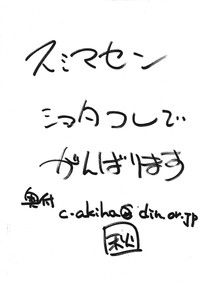 スミマセン
シヨタコしで
がんばります
奥付
c-akiha@din.or.jp
秋